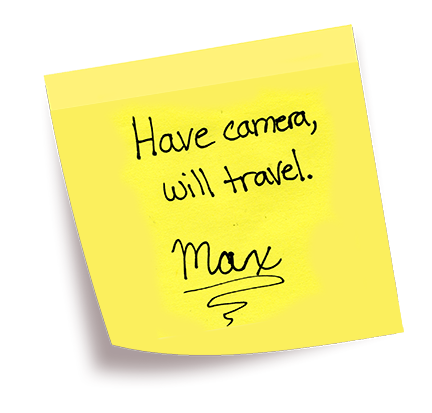 Have camera,
will travel.
Max